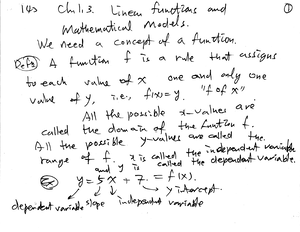 140 Ch 1.3. Linear functions and ①
Mathematical Models.
We need a concept of a function.
Defn A function f is a rule that assigns
to each value of x one and only one
value of y, i.e., f(x)=y. "f of x"
All the possible x-values are
called the domain of the function f.
All the possible y-values are called the
range of f. x is called the independent variable
and y is called the dependent variable.
Ex y = 5x + 7 = f(x).
y intercept
dependent variable slope independent variable